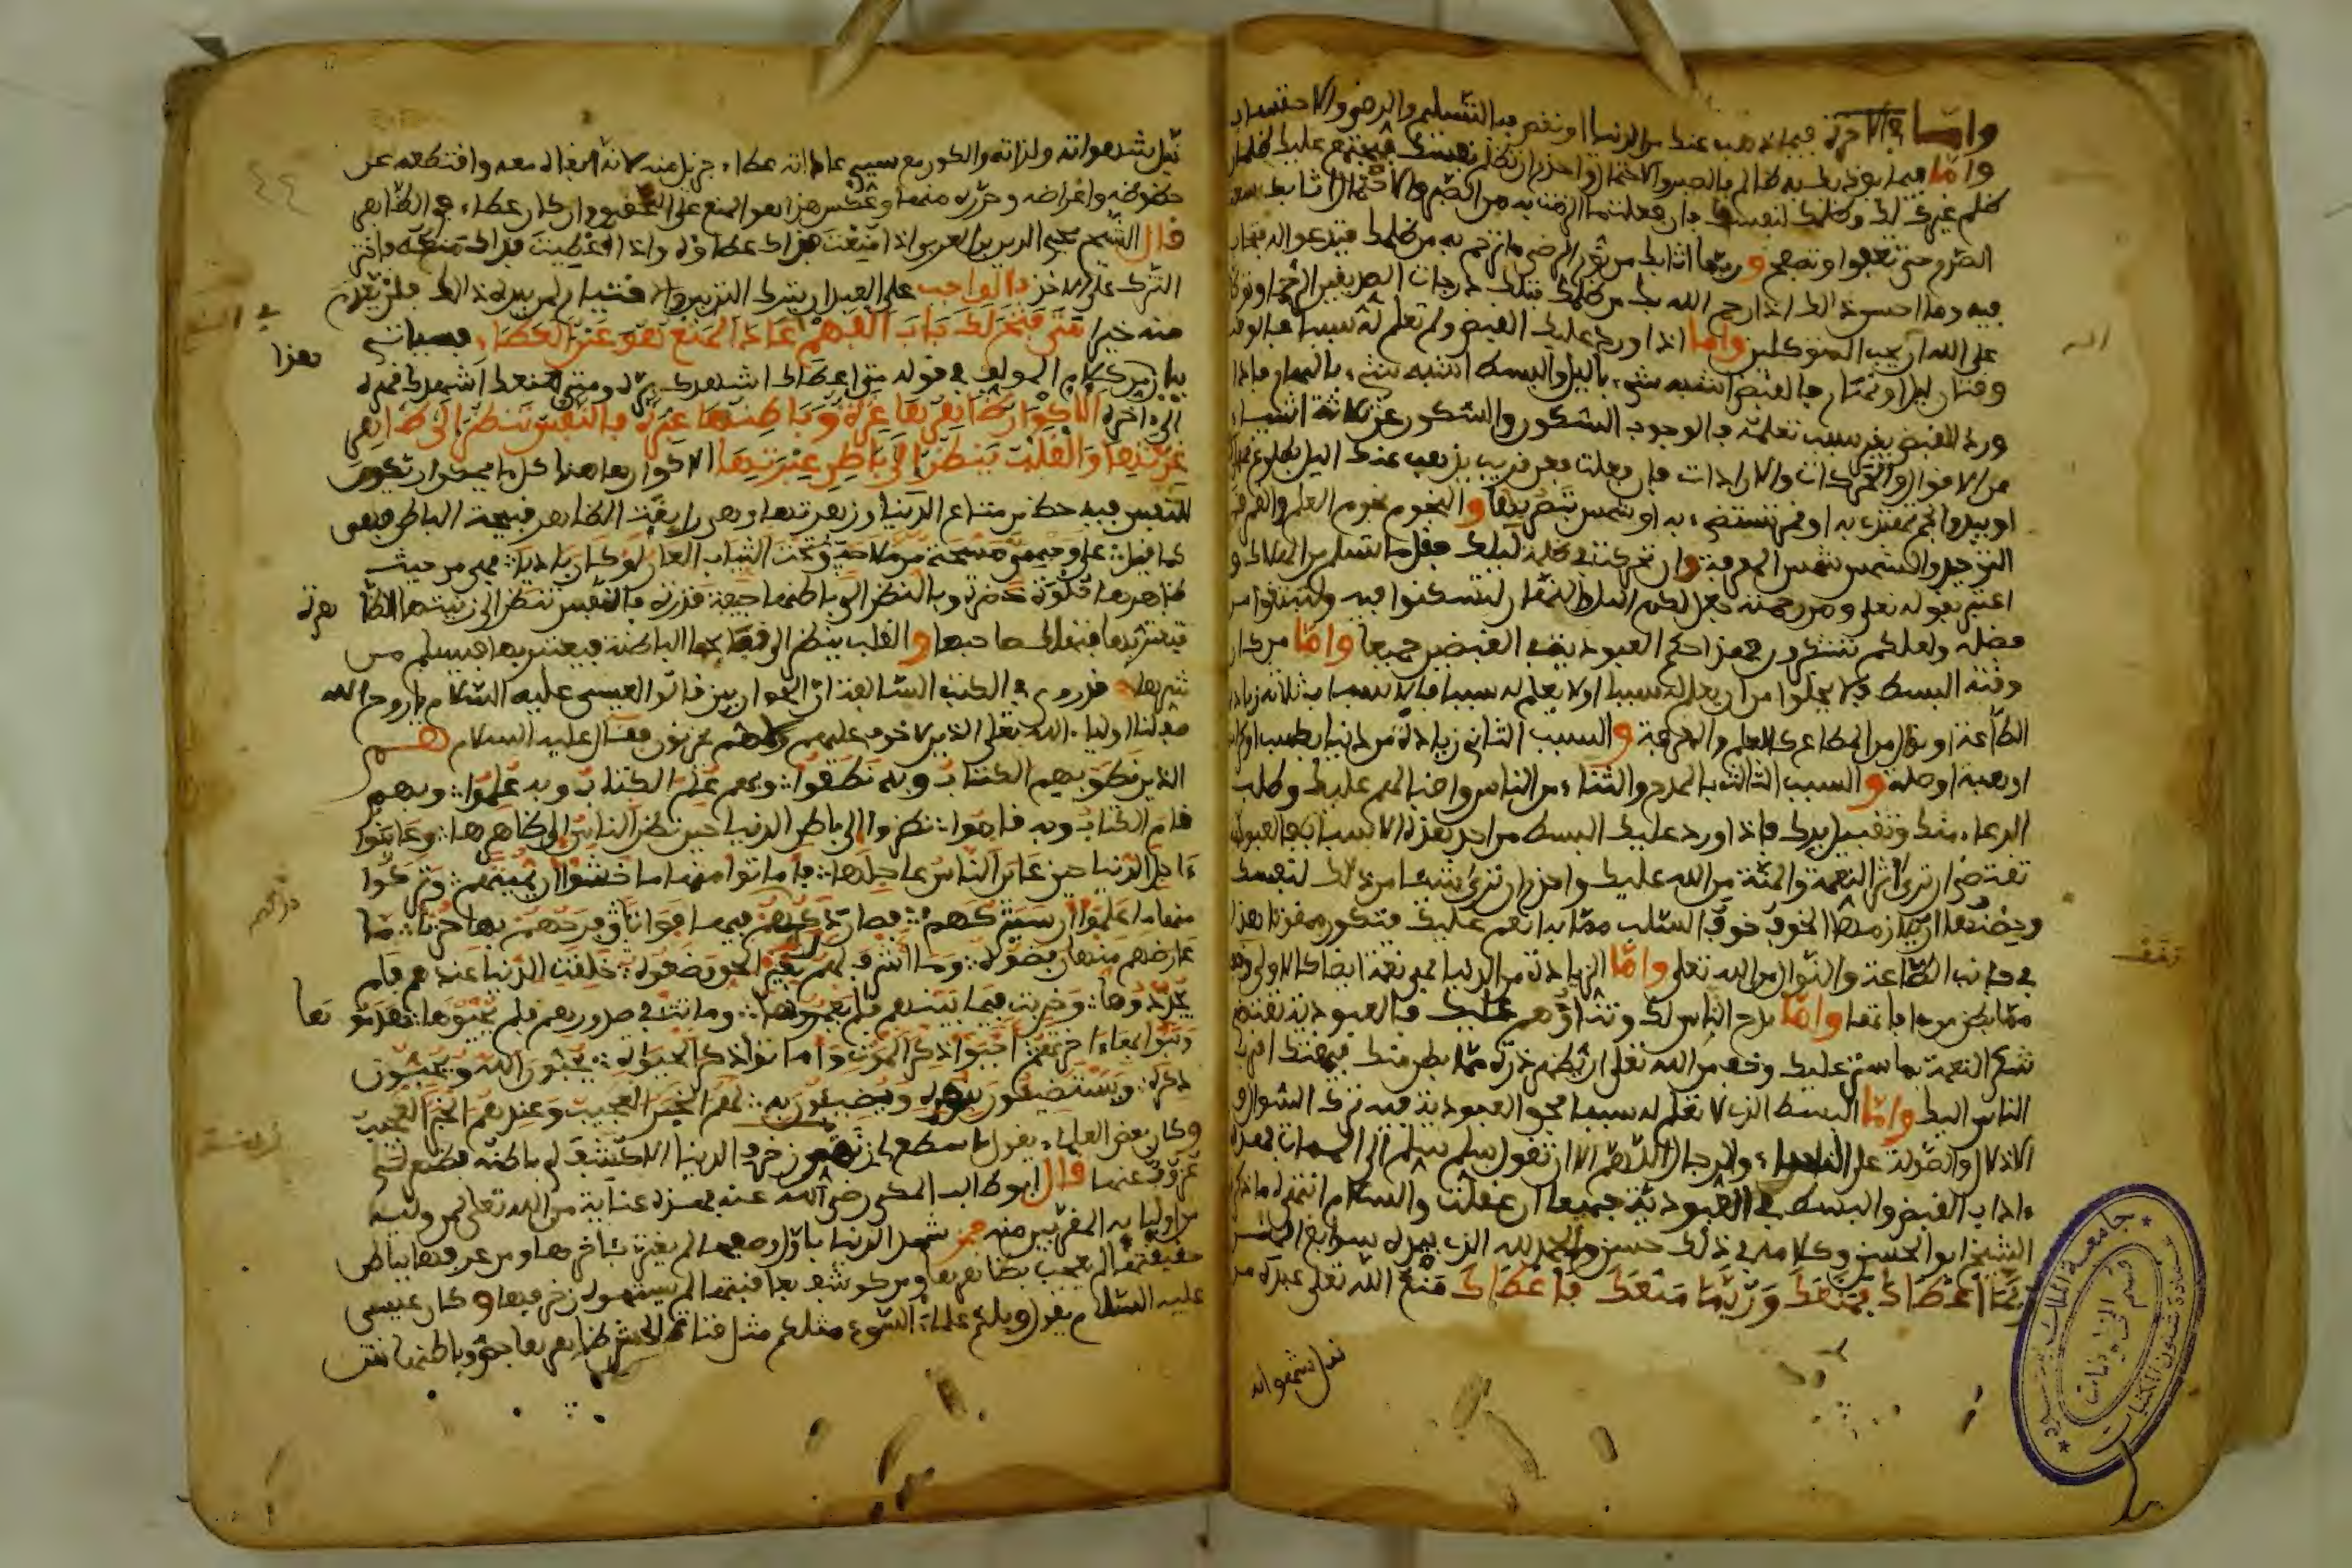 واما في الآخرة فيما ذهب عنك من الدنيا او نقص فيه التسليم والرضى والاحتساب
واما فيما يوذيك به ظالم فالصبر والاحتمال واحذر ان تظلم نفسك فيجتمع عليك ظلمان
ظلم غيرك لك وظلمك لنفسك فان فعلت ما الزمت به من الصبر والاحتمال اثابك سعة
الصدر حتى تعفوا وتصفح وربما اثابك من نور الرضى ما ترحم به من ظلمك فتدعوا له فتجاب
فيه وما احسن ذالك اذا رحم الله بك من ظلمك فتلك درجات الصديقين الرحماء وتوكل
على الله ان الله يحب المتوكلين واما اذا ورد عليك القبض ولم تعلم له سببا فالوقت
وقتان ليل ونهار فالقبض اشبه شيء بالليل والبسط اشبه شيء بالنهار فاذا
ورد القبض بغير سبب تعلمه فالوجوب السكون والسكون عن ثلاثة اشياء
عن الاقوال والحركات والارادات فان فعلت فعن قريب يذهب عنك الليل بطلوع نهارك
او يبدوا نجم تهتدى به او قمر تستضيء به او شمس تبصر بها والنجوم نجوم العلم والقمر قمر
التوحيد والشمس شمس المعرفة وان تحركت في ظلمة ليلك فقل ما تسلم من الهلاك و
اعتبر بقوله تعلى ومن رحمته جعل لكم الليل والنهار لتسكنوا فيه ولتبتغوا من
فضله ولعلكم تشكرون فهذا حكم العبودية في القبضين جميعا واما من كان
وقته البسط فلا يخلوا من ان يعلم له سببا او لا يعلم له سببا فالاسباب ثلاثة زيادة
الطاعة او نوال من المطاع كالعلم والمعرفة والسبب الثاني زيادة من دنيا بكسب او كرامة
او هبة او صلة والسبب الثالث بالمدح والثناء من الناس واقبالهم عليك وطلب
الدعاء منك وتقبيل يدك فاذا ورد عليك البسط من احد هذه الاسباب فالعبودية
تقتضى ان ترى اثر النعمة والمنة من الله عليك واحذر ان ترى شيئا من ذلك لنفسك
وحصنها ان يلازمها الخوف خوف السلب مما به انعم عليك فتكون ممقوتا هذا
في جانب الطاعة والنوال من الله تعلى واما الزيادة من الدنيا فهي نعمة ايضا كالاولى وخف
مما بطن من ءافاتها واما مدح الناس لك وثناؤهم عليك فالعبودية تقتضى
شكر النعمة بما ستر عليك وخف من الله تعلى ان يظهر ذرة مما بطن منك فيمقتك اقرب
الناس اليك واما البسط الذي لا تعلم له سببا فحق العبودية فيه ترك السؤال و
الادلال والصولة على النساء والرجال اللهم الا ان تقول سلم سلم الى الممات فهذه
ءاداب القبض والبسط في العبودية جميعا ان عقلت والسلام انتهى ما ذكره
الشيخ ابو الحسن وكلامه في ذلك حسن والحمد لله الذي بيده سوابغ المنن
ربما اعطاك فمنعك وربما منعك فاعطاك منع الله تعلى عبده من
نيل شهواته
نيل شهواته ولذاته والكون مع سيء عاداته عطاء جزيل منه لانه ابقاه معه واقتطعه عن
حظوظه واغراضه وحرره منها وعكس هذا هو المنع على التحقيق وان كان عطاء في الظاهر
قال الشيخ محيي الدين بن العربي اذا منعت فذاك عطاؤه واذا اعطيت فذاك منعه فاختر
الترك على الاخذ فالواجب على العبد ان يترك التدبير والاختيار لمن بيده ذالك فلن يعدم
منه خيرا متى فتح لك باب الفهم عاد المنع هو عين العطاء فسياتي
هذا
بيانه من كلام المولف في قوله متى اعطاك اشهدك بره ومتى منعك اشهدك قهره
الى ءاخره الاكوان ظاهرها غرة وباطنها عبرة فالنفس تنظر الى ظاهر
غرتها والقلب ينظر الى باطن عبرتها الاكوان هاهنا كل ما يمكن ان يكون
للنفس فيه حظ من متاع الدنيا وزهرتها وهي رايقة الظاهر قبيحة الباطن فهي
كما قيل على وجه مي مسحة من ملاحة وتحت الثياب العار لو كان باديا فهي من حيث
ظاهرها حلوة خضرة وبالنظر الى باطنها جيفة قذرة فالنفس تنظر الى زينتها الظا
هرة
فتغتر بها فتهلك صاحبها والقلب ينظر الى قبائحها الباطنة فيعتبر بها فيسلم من
شرها قد روي في الكتب السالفة ان الحواريين قالوا لعيسى عليه السلام يا روح الله
صف لنا اولياء الله تعلى الذين لا خوف عليهم ولا هم يحزنون فقال عليه السلام هم
الذين نطق بهم الكتاب وبه نطقوا وبهم علم الكتاب وبه علموا وبهم
قام الكتاب وبه قاموا نظروا الى باطن الدنيا حين نظر الناس الى ظاهرها وعاينوا
ءاجل الدنيا حين عاين الناس عاجلها فاماتوا منها ما خشوا ان يميتهم وتركوا
منها ما علموا ان سيتركهم فصار دركهم فيها فواتا وفرحهم بها حزنا ما
عارضهم منها رفضوه وما اشرف لهم بغير الحق وضعوه خلقت الدنيا عندهم فلم
يجددوها وخربت فيما بينهم فلم يعمروها وماتت في صدورهم فلم يحيوها هدمو
ها
وبنوا بهاء اخرتهم احيوا ذكر الموت واماتوا ذكر الحيوة يحبون الله ويحبون
ذكره ويستضيئون بنوره ويضيئون به لهم الخبر العجيب وعندهم الخبر العجيب
وكان بعض العلماء يقول ما سطع لي زخرف الدنيا الا كشف لي باطنه فظهر لي
عزوف عنها قال ابو طالب المكي رضي الله عنه فهذه عناية من الله تعلى لمن وليه
من اوليايه المقربين منه فمن شهد الدنيا باول وصفها لم يغتر بئاخرها ومن عرفها بباطن
حقيقتها لم يعجب بظاهرها ومن كوشف بعاقبتها لم يستهوه زخرفها وكان عيسى
عليه السلام يقول ويلكم علماء السوء مثلكم مثل قناة الحش ظاهرها جص وباطنها نتن
جامعة الملك سعود
عمادة شئون المكتبات
قسم المخطوطات